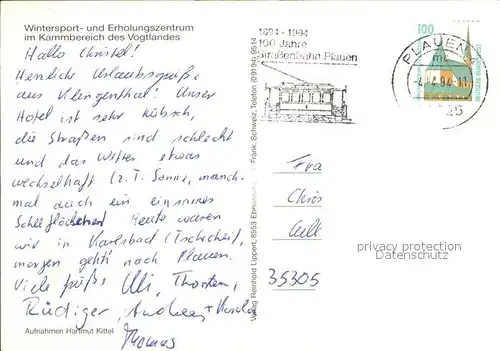 Wintersport- und Erholungszentrum
im Kammbereich des Vogtlandes
Hallo Christel!
Herzliche Urlaubsgrüße
aus Klingenthal! Unser
Hotel ist sehr hübsch,
die Straßen sind schlecht
und das Wetter etwas
wechselhaft (z.T. Sonne, manch-
mal auch ein einsames
Schneeflöckchen) Heute waren
wir in Karlsbad (Tschechei),
morgen geht's nach Plauen.
Viele Grüße, Uli, Thorsten,
Rüdiger, Andreas +
Thomas
Aufnahmen Hartmut Kittel
Verlag Reinhold Lippert, 8553 Fränk. Schweiz, Telefon (09194) 9514
1894-1994
100 Jahre
Straßenbahn Plauen
PLAUEN
-4.-4.94-11
100
DEUTSCHE BUNDESPOST
Fra
Chris
35305
privacy protection
Datenschutz